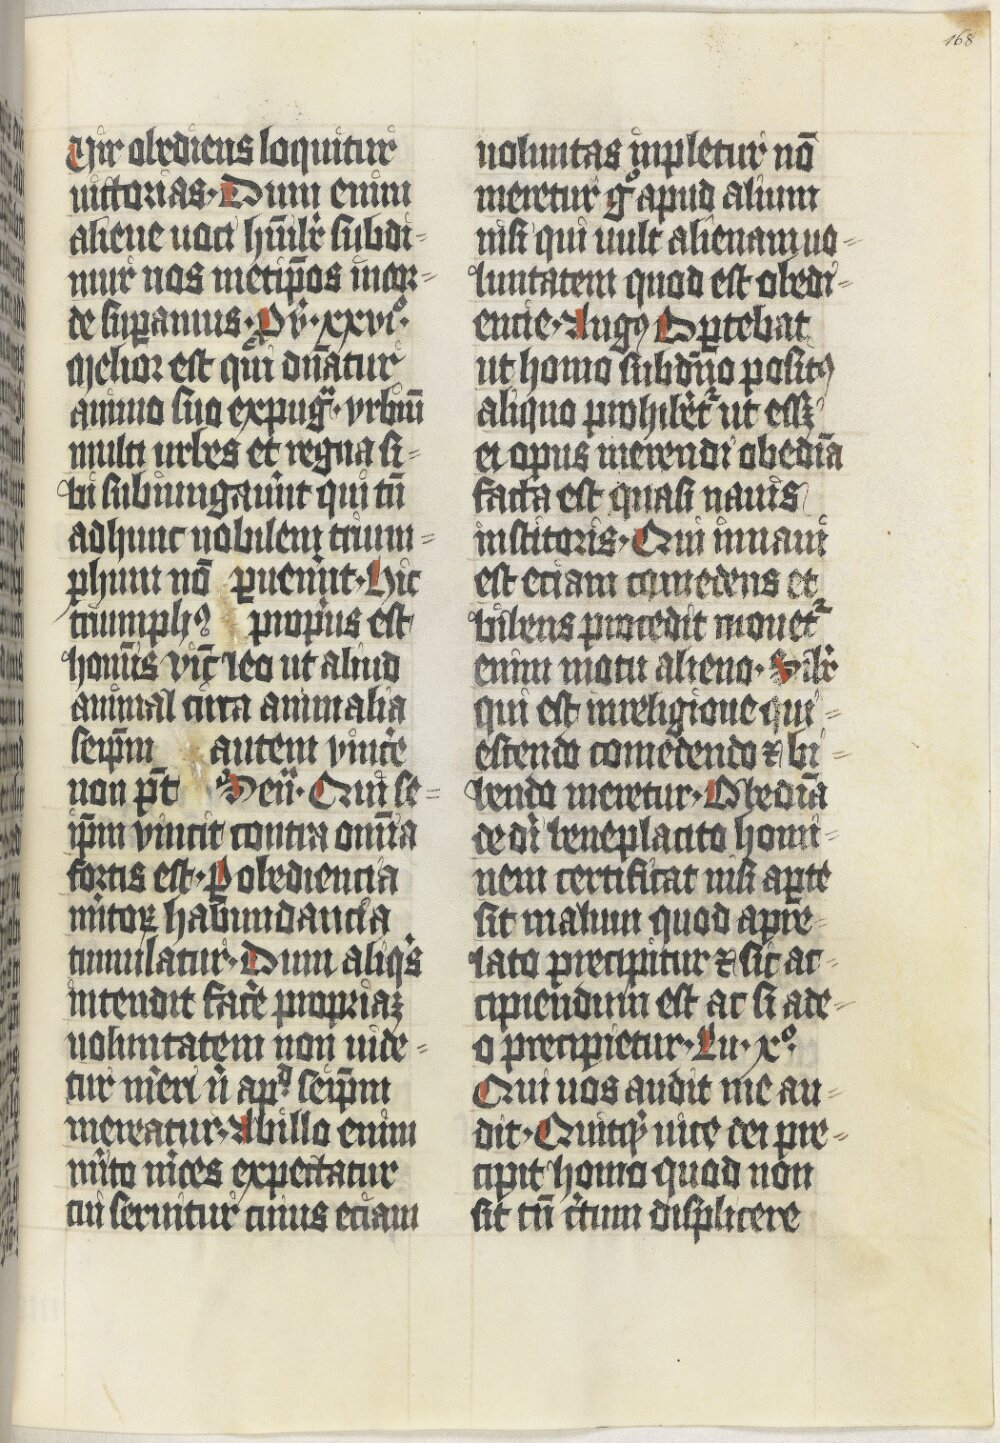 168
Vir obediens loquitur
uictorias. Dum enim
aliene uoci hu̅ilr̅ subdi=
mur nos metip̅os in cor=
de sup̱amus. Pv̅. xxviº.
Melior est qui dn̅atur
animo suo expug̅. vrbiu̅
multi urbes et regna si=
bi subiungaue̅nt qui tn̅
ad hunc nobilem trium=
phum no̅ ꝑuenie̅t. Hic
triumphꝰ proprius est
homi̅s vic̅ leo ut aliud
animal cu̅ca animalia
seip̅m autem vince̅
non pt̅ Sen. Qui se=
ip̅m vincit contra omnia
fortis est. Ꝑ obediencia
mi̅toꝝ habundancia
cumulatur. Dum aliqi̅s
intendit face̅ propriaꝫ
uoluntatem non uide=
tur me̅ri ni̅ apᵈ seip̅m
mereatur. Ab illo enim
mi̅to me̅ces expectatur
cui seruitur cuius eciam
uoluntas inpletur no̅
meretur gº apud alium
nisi qui uult alienam uo=
luntatem quod est obedi=
encie. Augꝰ Oꝑtebat
ut homo sub dn̅o positꝰ
aliquo prohibe̅tᷣ ut esꝫ
ei opus merendi obedia̅
facta est quasi nauis
institoris. Qui in naui
est eciam comedens et
bibens procedit mouetᷣ
enim motu alieno. Silr̅
qui est in religione qui=
escendo comedendo ⁊ bi=
bendo meretur. Obedia̅
de di̅ beneplacito homi=
nem certificat nisi aꝑte
sit malum quod a pre=
lato precipitur ⁊ sic ac=
cipiendum est ac si a de=
o precipietur. Lu. xº.
Qui uos audit me au=
dit. Quicqͥ uice dei pre=
cipit homo quod non
sit tn̅ ce̅tum displicere